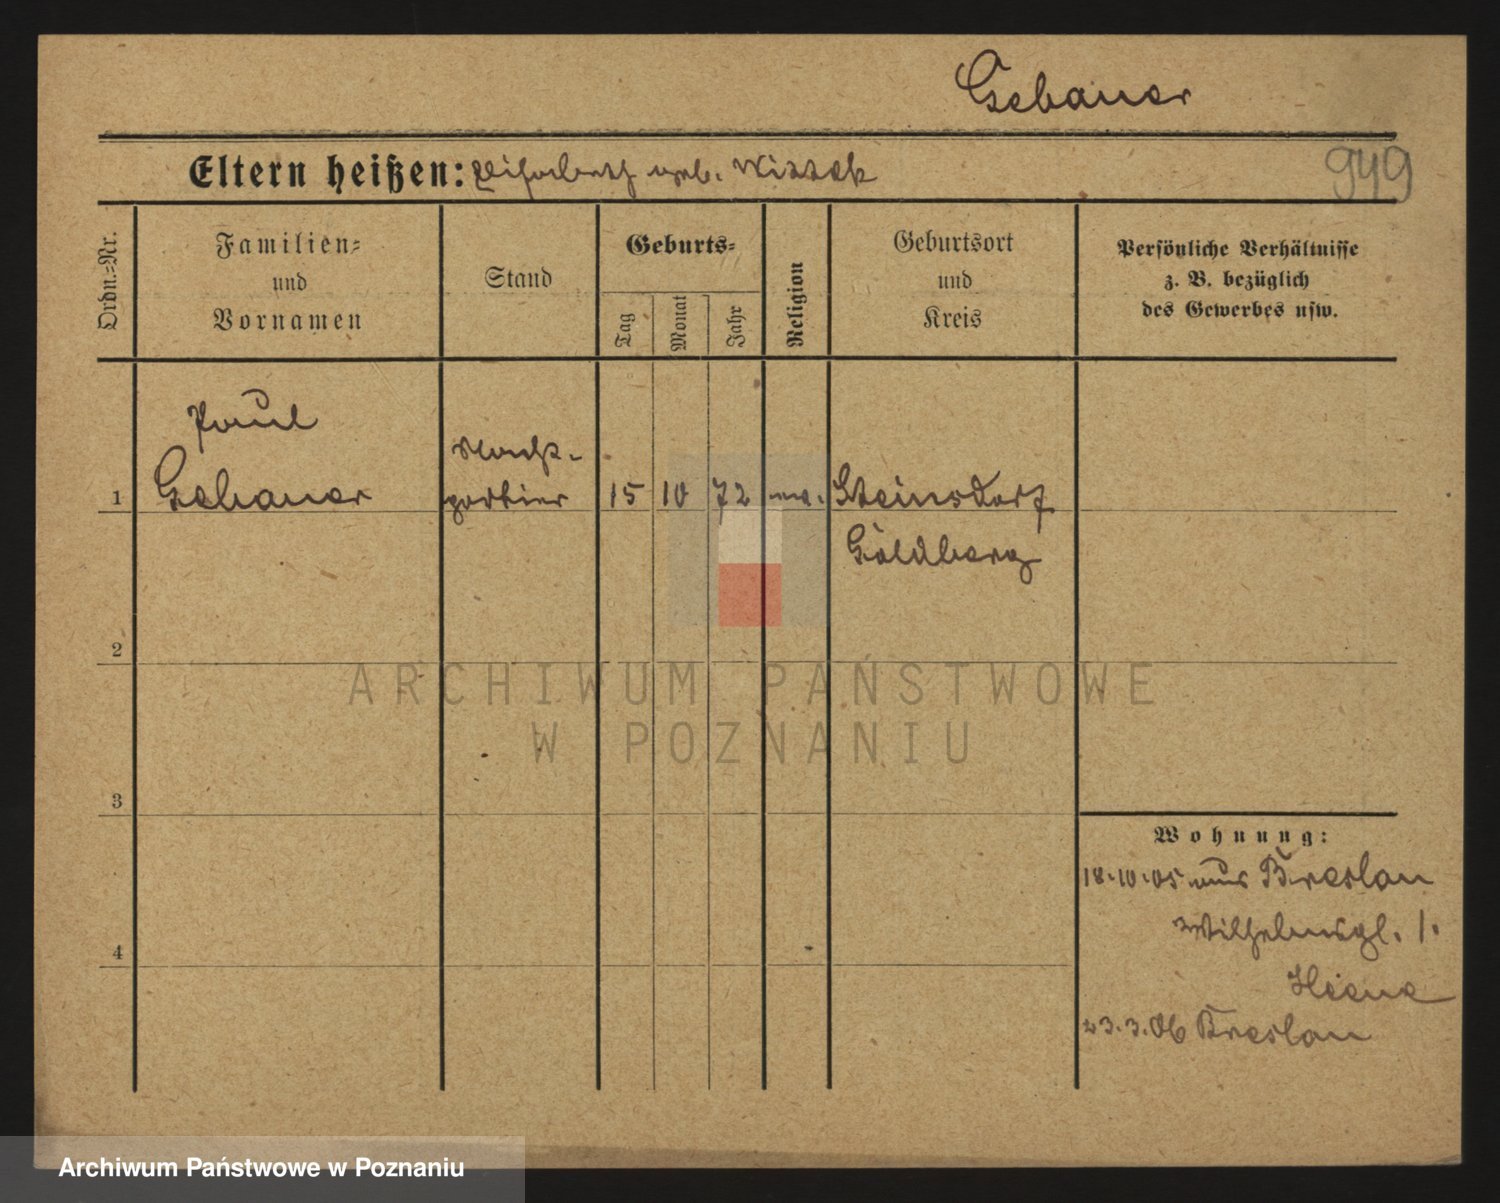 Gebauer
Eltern heißen: geb. Wittek
949
Ordn.=Nr.
Familien=
und
Vornamen
Stand
Geburts=
Tag
Monat
Jahr
Religion
Geburtsort
und
Kreis
Persönliche Verhältnisse
z. B. bezüglich
des Gewerbes usw.
Paul
1 Gebauer portier 15 10 72 ev. Steinsdorf
Goldberg
2
3
4
Wohnung:
18.10.05 aus Breslau
Wilhelmspl. 1.
23.3.06 Breslau
ARCHIWUM PAŃSTWOWE
W POZNANIU
Archiwum Państwowe w Poznaniu